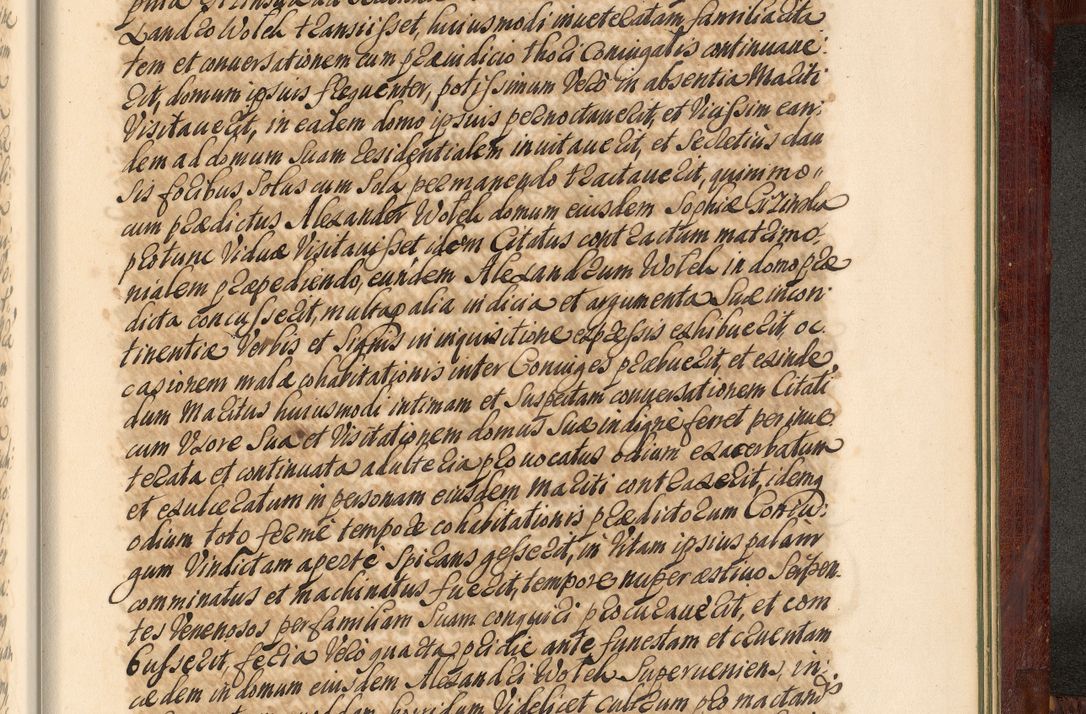 Landro Wolek transiisset, huiusmodi inveteratam familiarita
tem et conversationem cum præiudicio thori Coniugalis continuave:
rit, domum ipsius frequenter, potissimum Verò in absentia Mariti
Visitaverit, in eadem domo ipsius pernoctaverit, et Vicissim ean:
dem ad domum Suam residentialem invitaverit, et Secretius clau
sis foribus Solus cum Sola permanendo tractaverit, quinimo
cum prædictus Alexander Wolek domum eiusdem Sophiæ
protunc Viduæ Visitavisset idem Citatus contractum matrimo,
nialem præpediendo, eundem Alexandrum Wolek in domo præ
dicta concusserit, multaq alia indicia et argumenta Suæ incon
tinentiæ Verbis et Signis in inquisitione expressis exhibuerit, oc
casionem malæ cohabitationis inter Coniuges præbuerit, et exinde
dum Maritus huiusmodi intimam et Suspectam conversationem Citati
cum Uxore Sua et Visitationem domus Suæ indigne ferret per inve
terata et continuata adulteria provocatus odium exacerbatum
et exulceratum in personam eiusdem mariti contraxerit, idemq
odium toto fermè tempore cohabitationis prædictorum Coniu:
gum Vindictam apertè Spirans gesserit, in Vitam ipsius palam
comminatus et machinatus fuerit, tempore nuper æstivo Serpen
tes Venenosos per familiam Suam conquiri procuraverit, et com
busserit, feria Verò quarta pridie ante funestam et cruentam
cædem in domum eiusdem Alexandri Wolek Superveniens, in:
Videlicet cultrum pro mactand